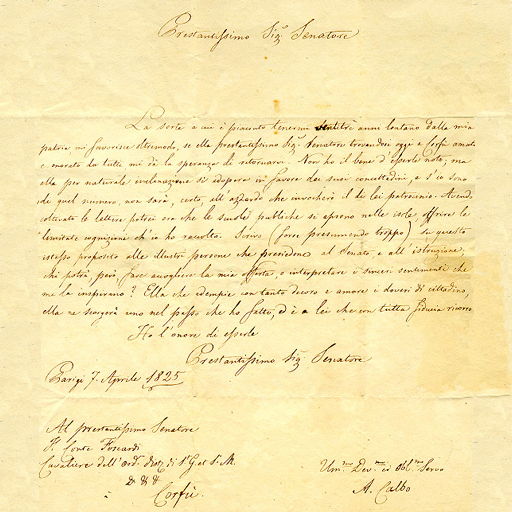 Prestantissimo Sig.r Senatore
La sorte a cui è piaciuto tenermi ventitrè anni lontano dalla mia
patria mi favorisce oltremodo, se ella prestantissimo Sig.r Senatore trovandosi oggi a Corfù amato
e onorato da tutti mi dà la speranza di ritornarvi. Non ho il bene d'esserle noto, ma
ella per naturale inclinazione si adopera in favore dei suoi concittadini, e s'io sono
di quel numero, non sarà, certo, all'azzardo che invocherò il di lei patrocinio. Avendo
coltivato le lettere potrei ora che le scuole publiche si aprono nelle isole, offrire le
limitate cognizioni ch'io ho raccolte. Scrivo (forse presumendo troppo) su questo
istesso proposito alle illustri persone che presiedono al Senato, e all'istruzione;
chi potrà però fare accogliere la mia offerta, e interpretare i sinceri sentimenti che
me la inspirano? Ella che adempie con tanto decoro e amore i doveri di cittadino,
ella ne scorgerà uno nel passo che ho fatto, ed è a lei che con tutta fiducia ricorro
Ho l'onore di esserle
Prestantissimo Sig.r Senatore
Parigi 7. Aprile 1825
Al prestantissimo Senatore
Il Conte Foscardi
Cavaliere dell'ord. di S.t M. et S. G.
&. &. &.
Corfù.
Um.mo Dev.mo ed Obl.mo Servo
A. Calbo